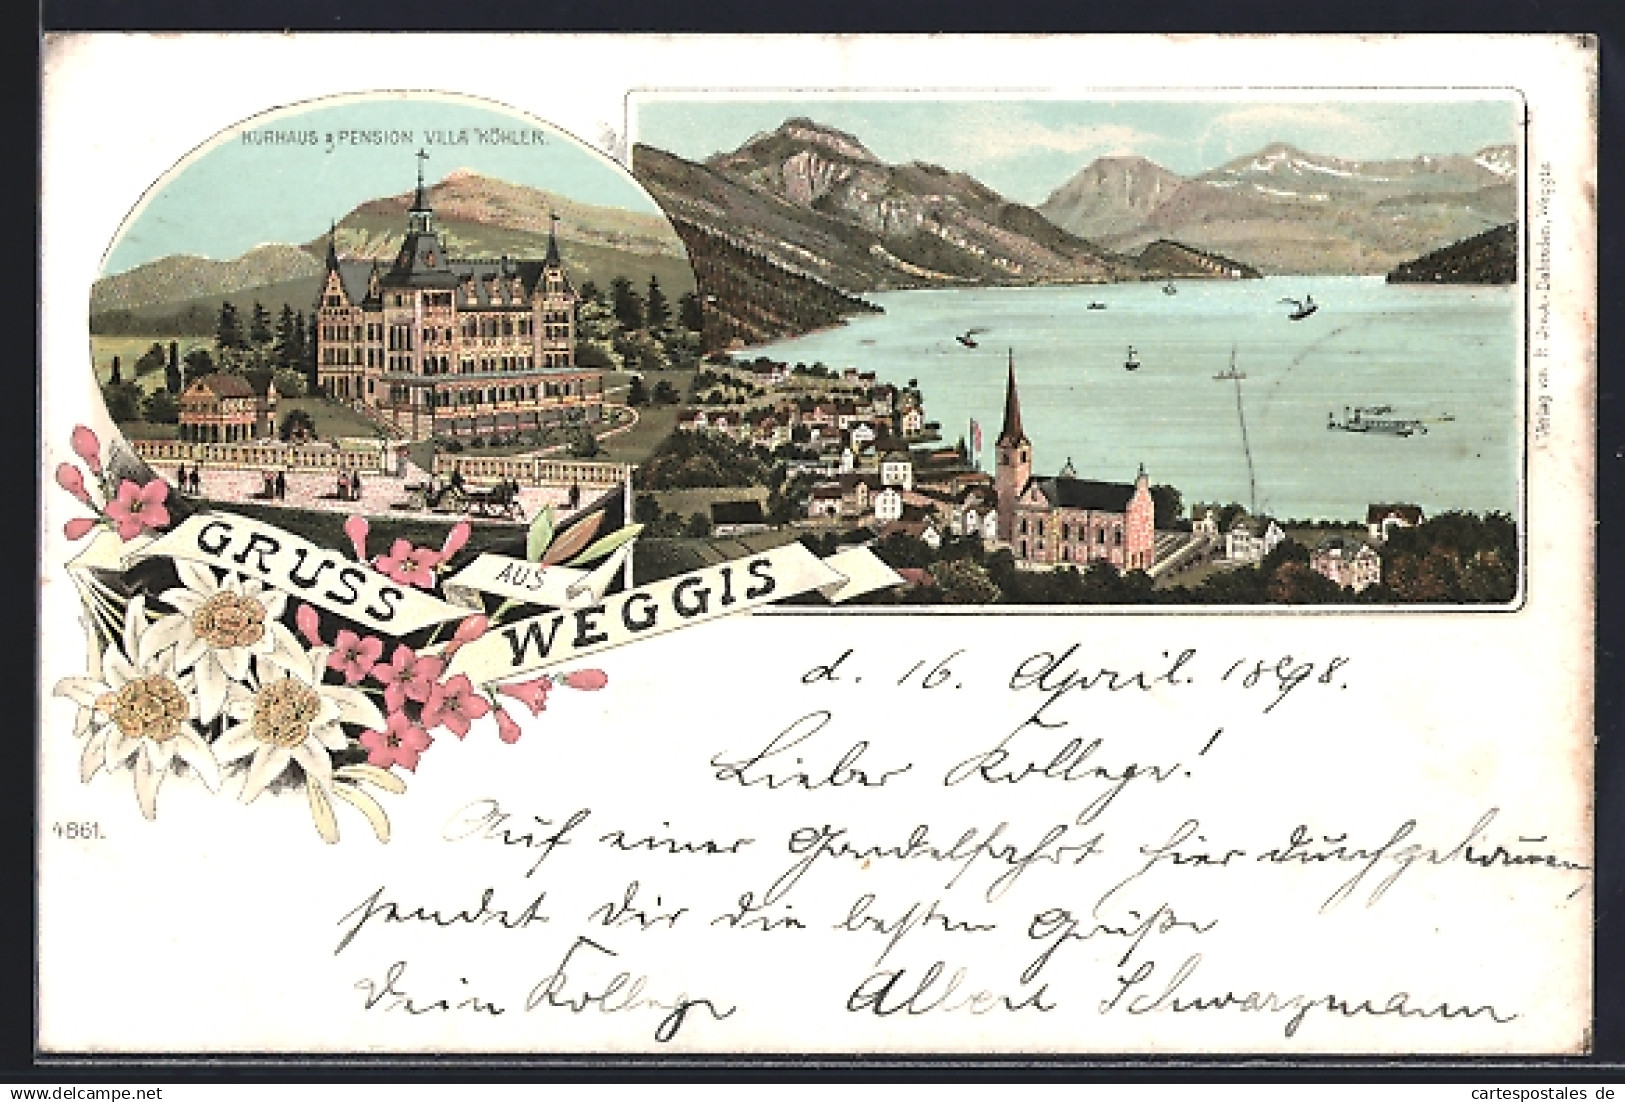 KURHAUS & PENSION VILLA KÖHLER.
GRUSS
AUS
WEGGIS
Verlag von
Dahinden, Weggis.
d. 16. April. 1898.
Lieber Kollege!
Auf einer Gondelfahrt hier durchgekommen,
sendet dir die besten Grüße
Dein Kollege Albert Schwarzmann
4861.
cartespostales de